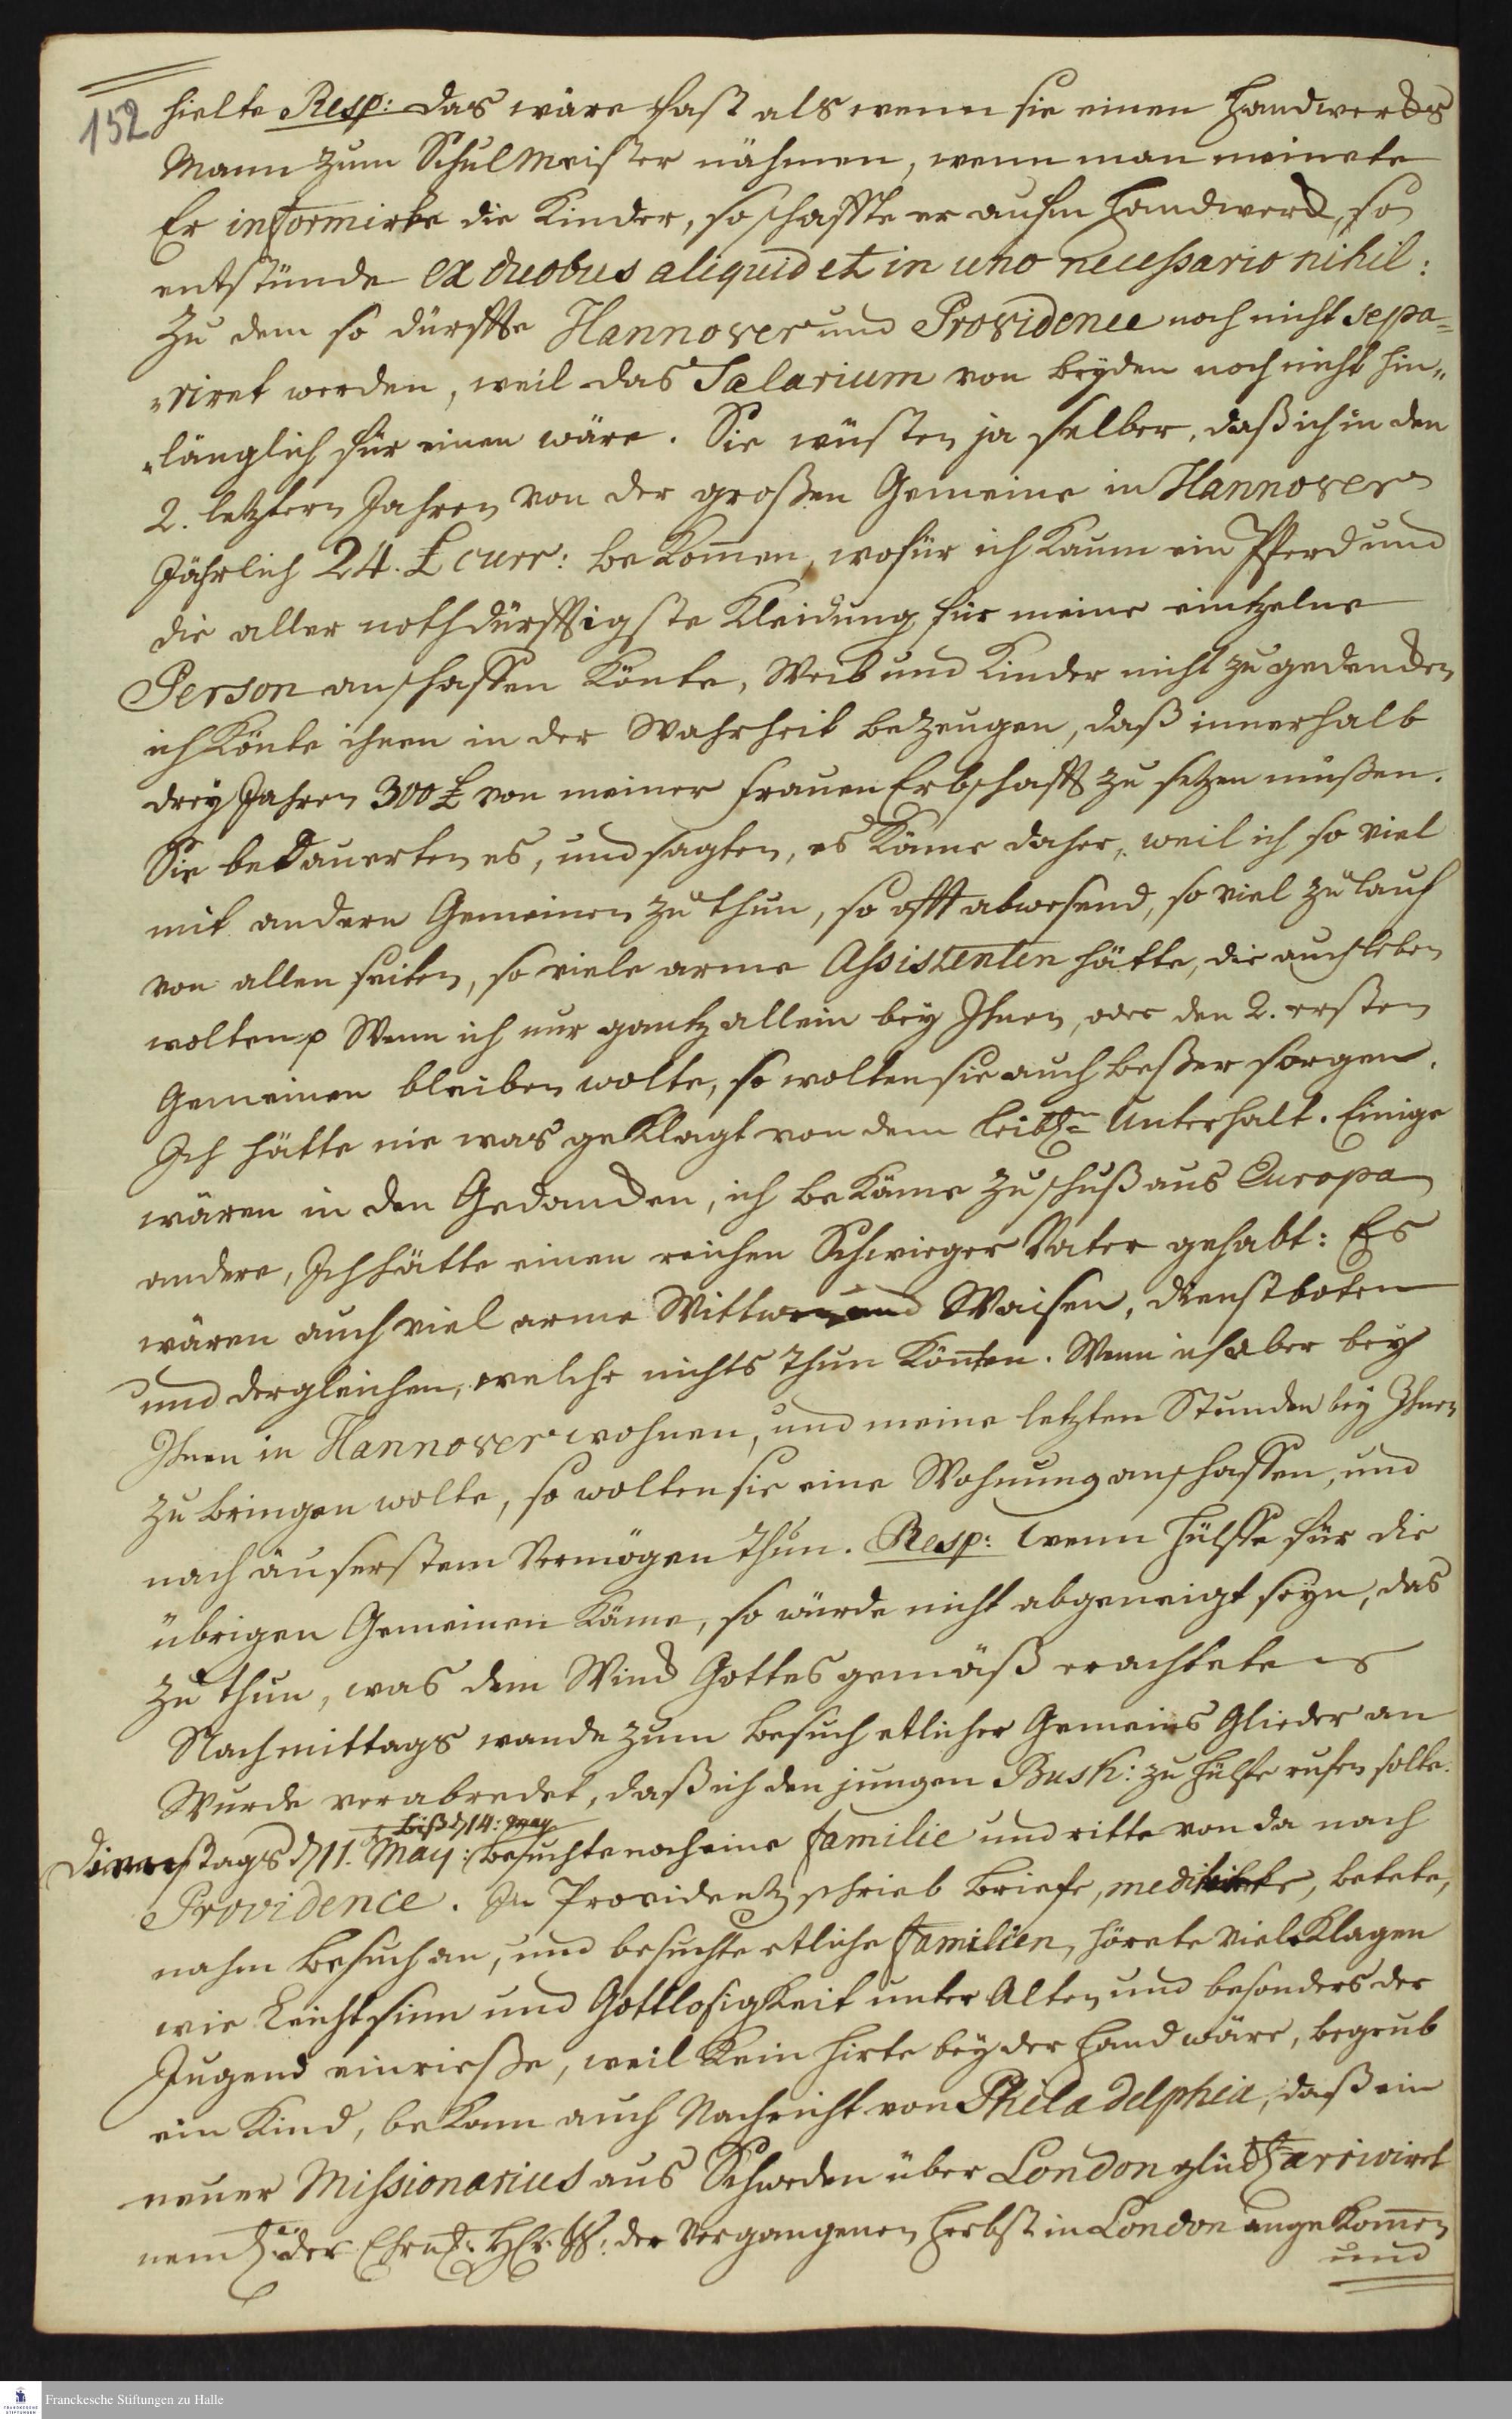 152
hielte Resp: das wäre fast als wenn sie einen Handwercks
Mann zum Schul Meister nähmen, wenn man meinete
Er informirte die Kinder, so schaffte er aufm Handwerck, so
entstünde ex duobus aliquid et in uno necessario nihil:
Zu dem so dürffte Hannover und Providence noch nicht sepa=
„riret werden, weil das Salarium von beyden noch nicht hin„
„länglich für einen wäre. Sie wüsten ja selber, daß ich in den
2. letztern Jahren von der großen Gemeine in Hannover
Jährlich 24. £ curr: bekom̅en, wofür ich kaum ein Pferd und
die aller nothdürfftigste Kleidung für meine eintzelne
Person anschaffen könte, Weib und Kinder nicht zu gedencken
ich könte ihnen in der Wahrheit bezeugen, daß innerhalb
drey Jahren 300 £ von meiner Frauen Erbschafft zu setzen müßen.
Sie bedauerten es, und sagten, es käme daher, weil ich so viel
mit andern Gemeinen zu thun, so offt abwesend, so viel Zulauf
von allen seiten, so viele arme Assistenten hätte, die auch leben
wolten p Wenn ich nur gantz allein bey Ihnen, oder den 2. ersten
Gemeinen bleiben wolte, so wolten sie auch beßer sorgen.
Ich hätte nie was geklagt von dem leibl: Unterhalt. Einige
wären in den Gedancken, ich bekäme Zuschuß aus Europa
andere, Ich hätte einen reichen Schwieger Vater gehabt: Es
wären auch viel arme Wittwen und Waisen, dienstboten
und dergleichen, welche nichts thun könten. Wenn ich aber bey
Ihnen in Hannover wohnen, und meine letzten Stunden bey Ihnen
zu bringen wolte, so wolten sie eine Wohnung anschaffen, und
nach äuserstem Vermögen thun. Resp: wenn Hülffe für die
übrigen Gemeinen käme, so würde nicht abgeneigt seyn, das
zu thun, was dem Winck Gottes gemäß erachtete
Nachmittags wande zum Besuch etlicher Gemeins Glieder an
Wurde verabredet, daß ich den jungen Busk: zu Hülfe rufen solte.
biß d 14: May
Dienstags d 11. May: besuchte noch eine familie und ritte von da nach
Providence. In Providentz schrieb Briefe, meditirte, betete,
nahm Besuch an, und besuchte etliche familien, hörete viel Klagen
wie Leichtsinn und Gottlosigkeit unter Alten und besonders der
Jugend einrieße, weil kein Hirte bey der Hand wäre, begrub
ein Kind, bekam auch Nachricht von Philadelphia, daß ein
neuer Missionarius aus Schweden über London glückl: arriviret
neml: der Ehrw: H. der vergangenen Herbst in London angekom̅en
und
Franckesche Stiftungen zu Halle